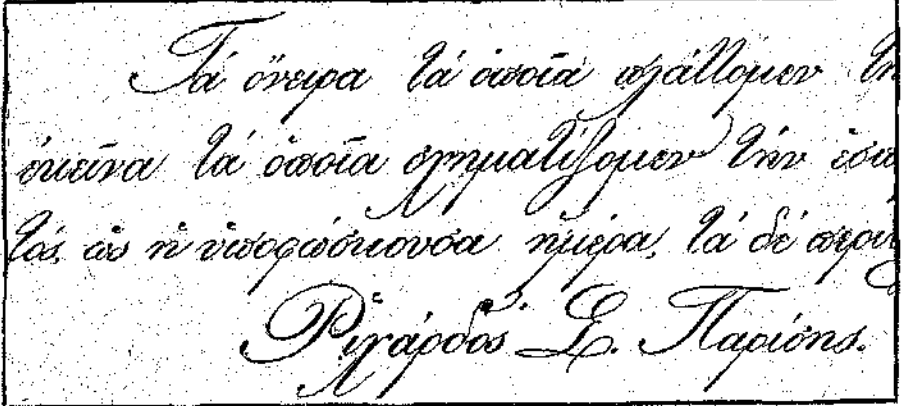 Τά ὄνειρα τά ὁποῖα πλάττομεν τη
ἐκεῖνα τά ὁποῖα σχηματίζομεν τήν ἑσπ
τός, ὡς ἡ ὑποφώσκουσα ἡμέρα, τά δέ πρωϊ
Ριχάρδος Σ. Παρίσης.